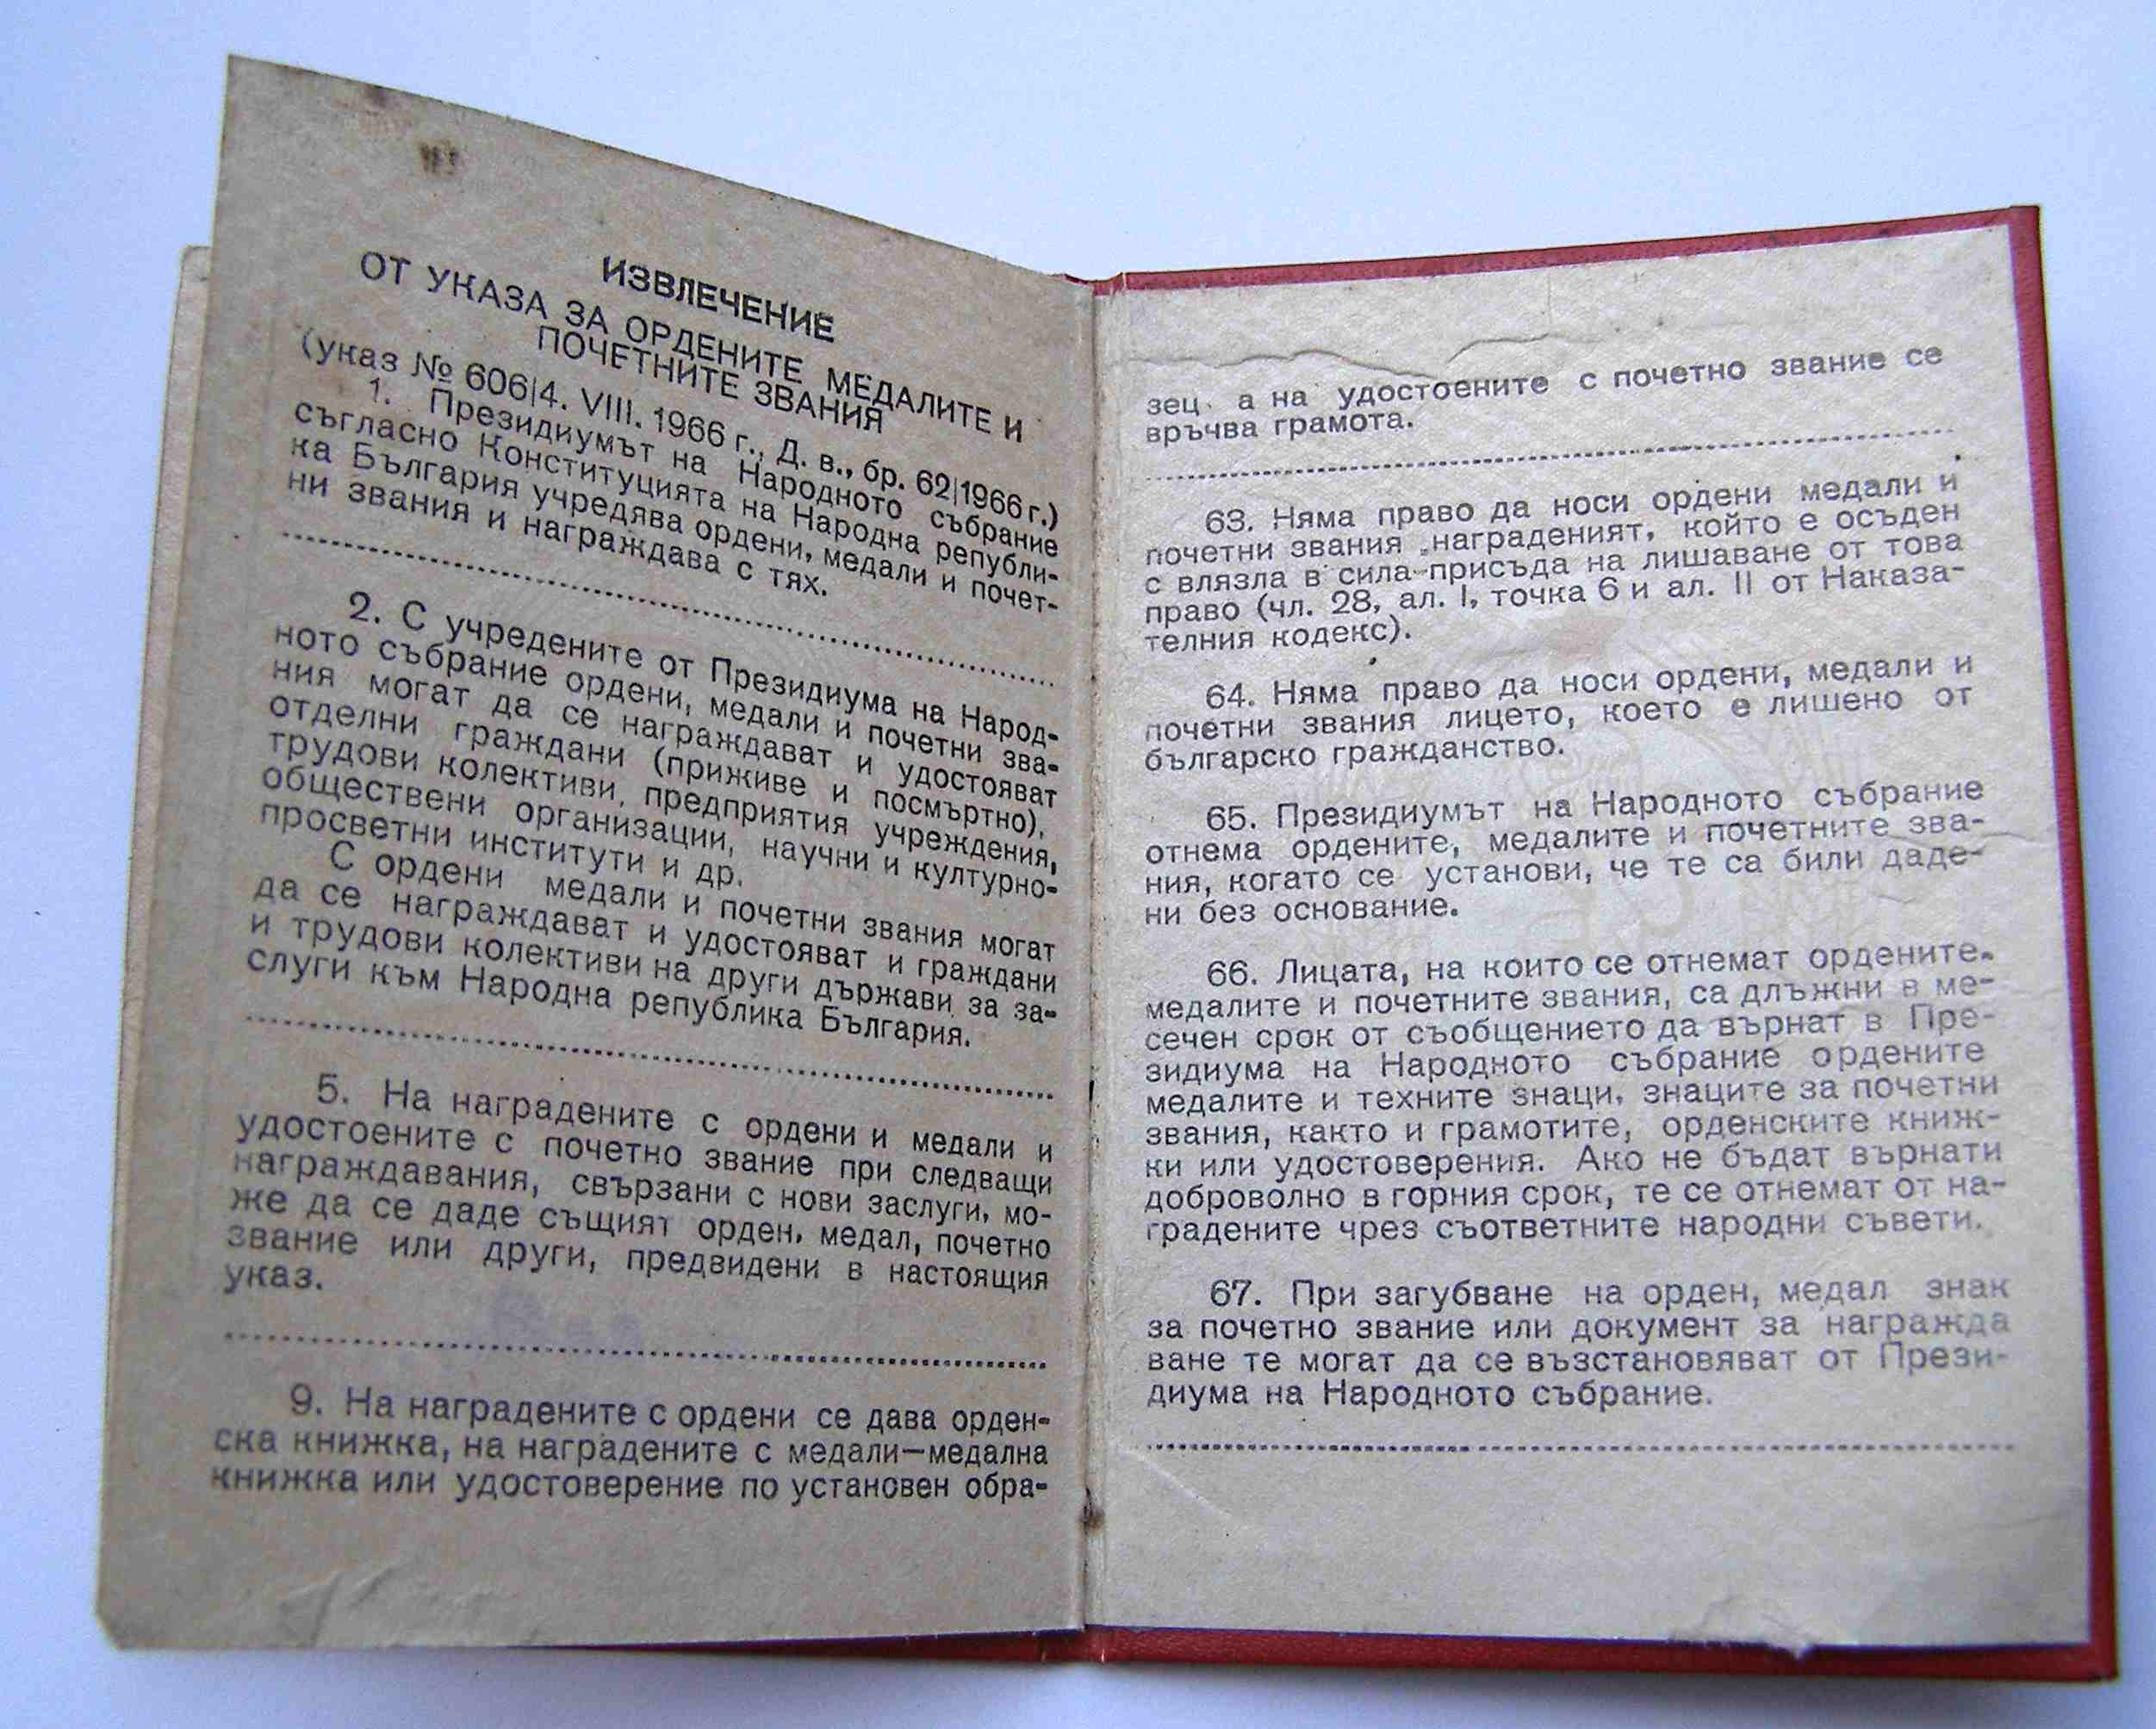 ИЗВЛЕЧЕНИЕ
ОТ УКАЗА ЗА ОРДЕНИТЕ МЕДАЛИТЕ И
ПОЧЕТНИТЕ ЗВАНИЯ
(указ № 606|4. VIII. 1966 г., Д. в., бр. 62|1966 г.)
1. Президиумът на Народното събрание
съгласно Конституцията на Народна републи-
ка България учредява ордени, медали и почет-
ни звания и награждава с тях.
2. С учредените от Президиума на Народ-
ното събрание ордени, медали и почетни зва-
ния могат да се награждават и удостояват
отделни граждани (приживе и посмъртно),
трудови колективи, предприятия учреждения,
обществени организации, научни и културно-
просветни институти и др.
С ордени медали и почетни звания могат
да се награждават и удостояват и граждани
и трудови колективи на други държави за за-
слуги към Народна република България.
5. На наградените с ордени и медали и
удостоените с почетно звание при следващи
награждавания, свързани с нови заслуги, мо-
же да се даде същият орден, медал, почетно
звание или други, предвидени в настоящия
указ.
9. На наградените с ордени се дава орден-
ска книжка, на наградените с медали—медална
книжка или удостоверение по установен обра-
зец а на удостоените с почетно звание се
връчва грамота.
63. Няма право да носи ордени медали и
почетни звания награденият, който е осъден
с влязла в сила присъда на лишаване от това
право (чл. 28, ал. I, точка 6 и ал. II от Наказа-
телния кодекс).
64. Няма право да носи ордени, медали и
почетни звания лицето, което е лишено от
българско гражданство.
65. Президиумът на Народното събрание
отнема ордените, медалите и почетните зва-
ния, когато се установи, че те са били даде-
ни без основание.
66. Лицата, на които се отнемат ордените,
медалите и почетните звания, са длъжни в ме-
сечен срок от съобщението да върнат в Пре-
зидиума на Народното събрание ордените
медалите и техните знаци, знаците за почетни
звания, както и грамотите, орденските книж-
ки или удостоверения. Ако не бъдат върнати
доброволно в горния срок, те се отнемат от на-
градените чрез съответните народни съвети.
67. При загубване на орден, медал знак
за почетно звание или документ за награжда
ване те могат да се възстановяват от Прези-
диума на Народното събрание.